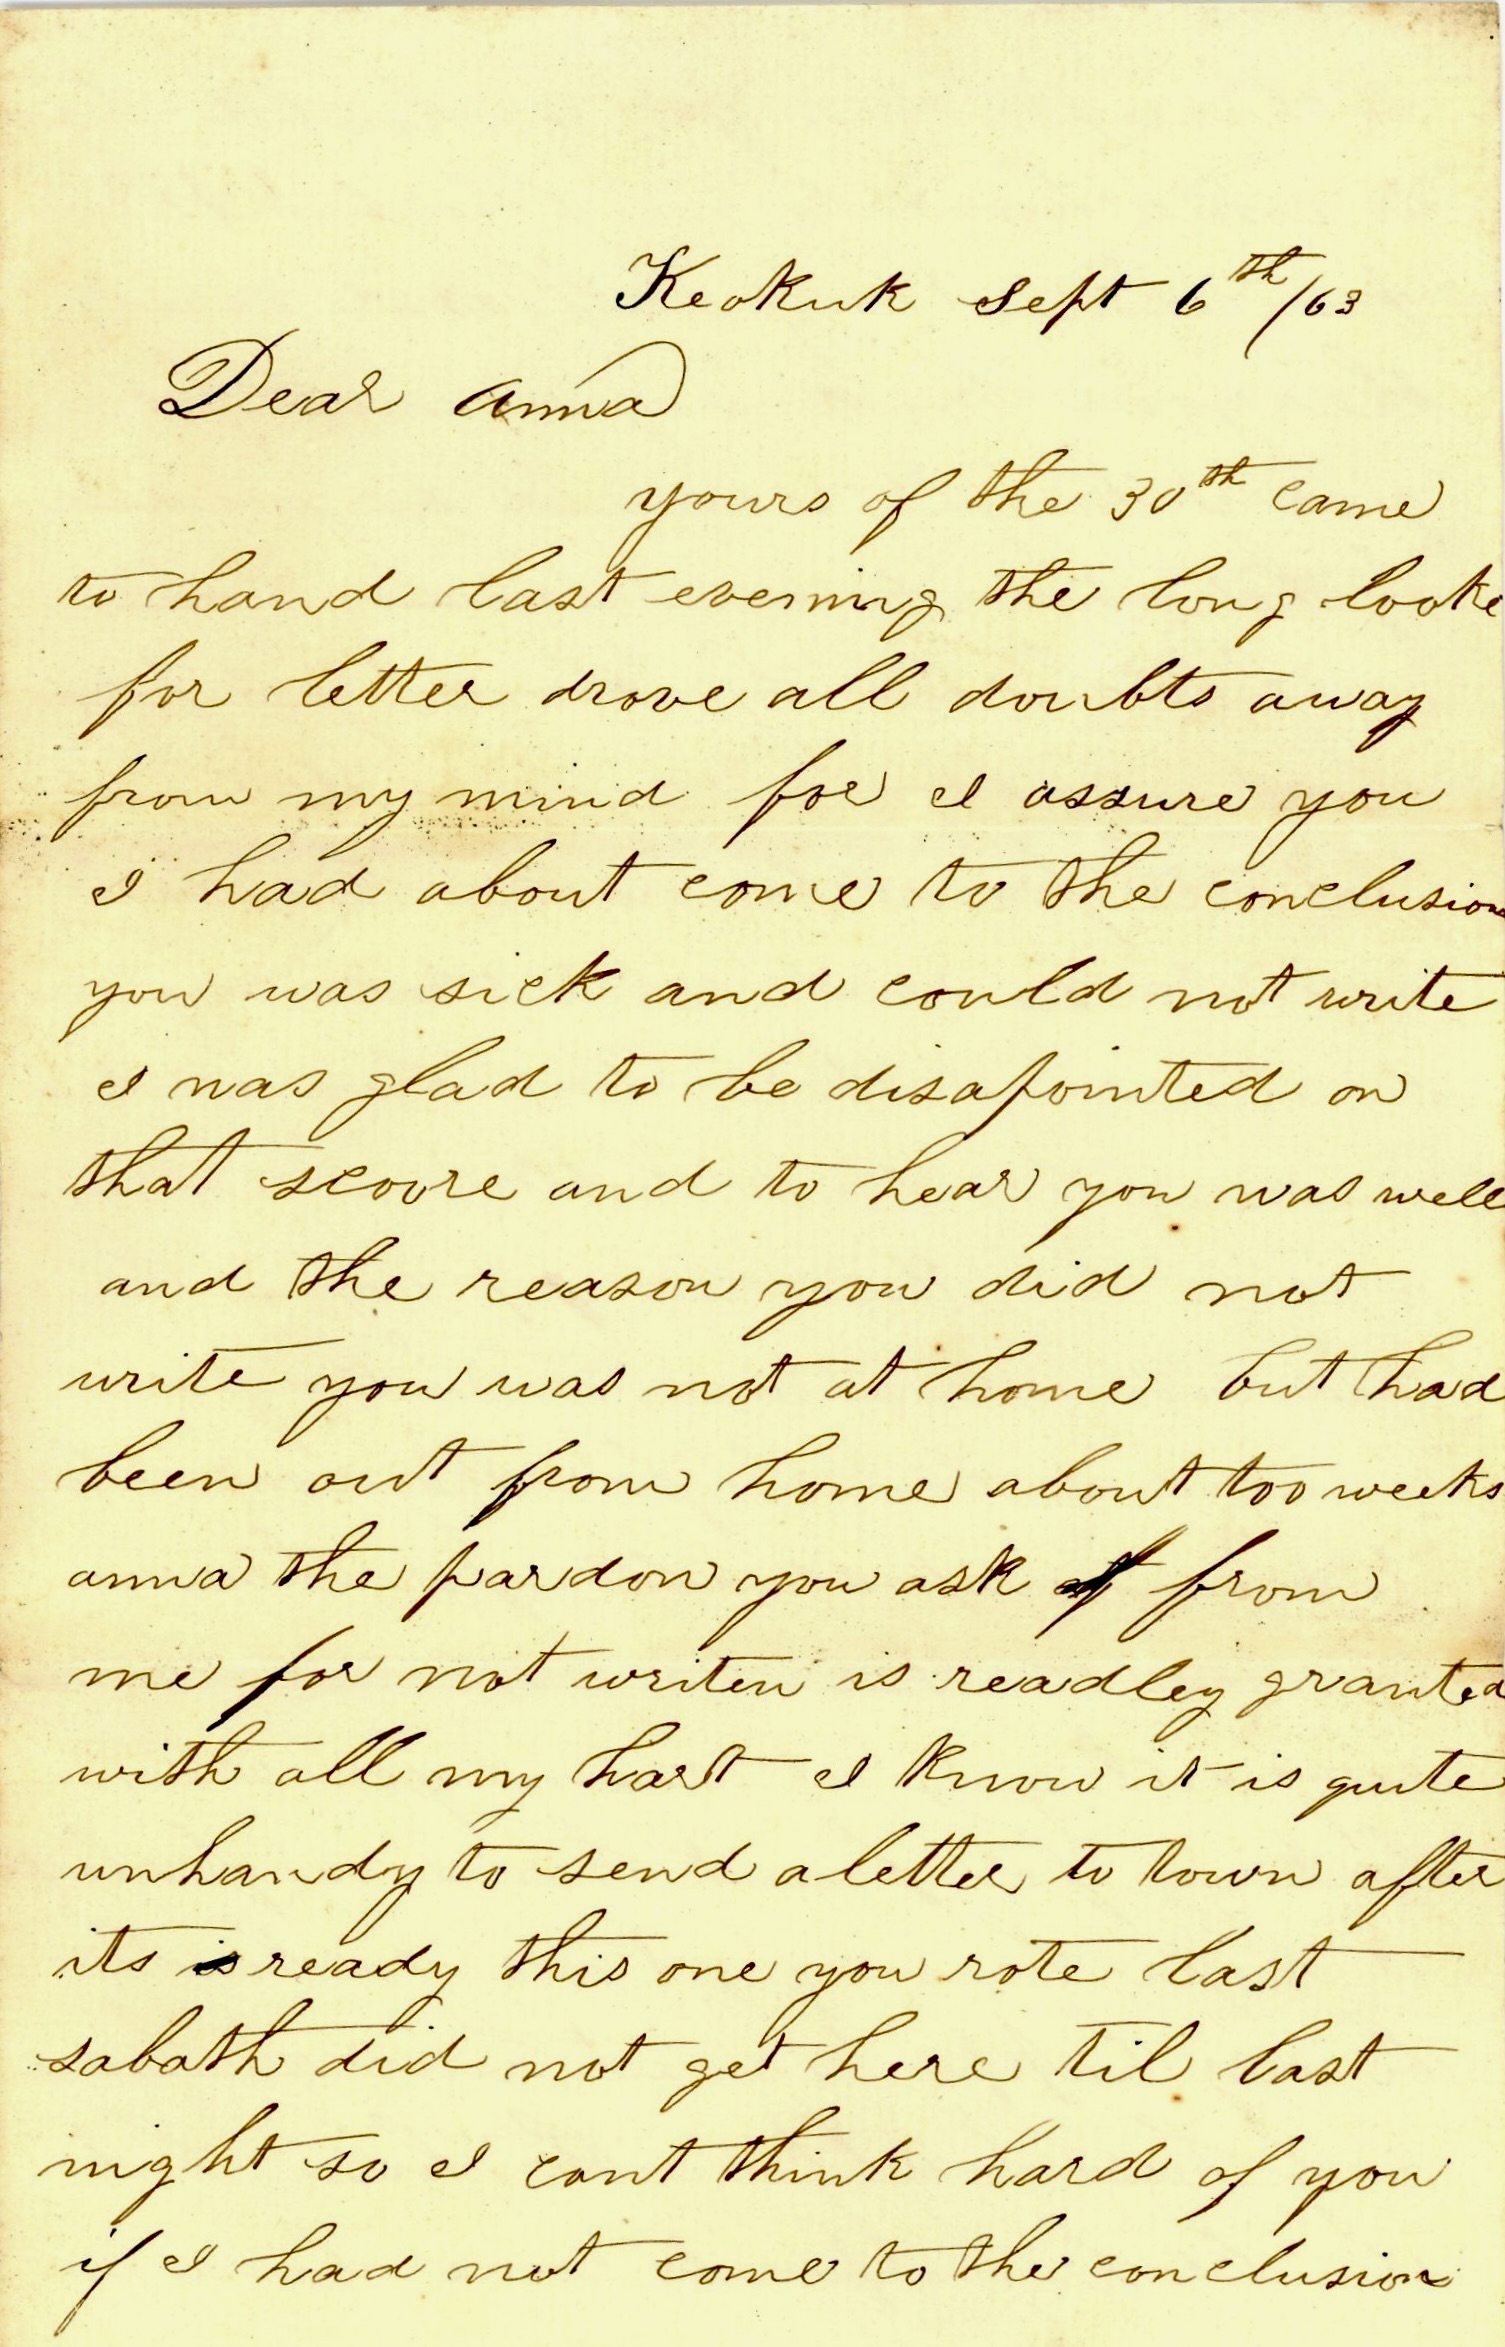 Keokuk Sept 6th /63
Dear Anna
yours of the 30th came
to hand last evening the long looke
for letter drove all doubts away
from my mind for I assure you
I had about come to the conclusion
you was sick and could not write
I was glad to be disapointed on
that scoore and to hear you was well
and the reason you did not
write you was not at home but had
been out from home about too weeks
anna the pardon you ask of from
me for not writen is readley granted
with all my hart I know it is quite
unhandy to send a letter to town after
its is ready this one you rote last
sabath did not get here til last
night so I cant think hard of you
if I had not come to the conclusion